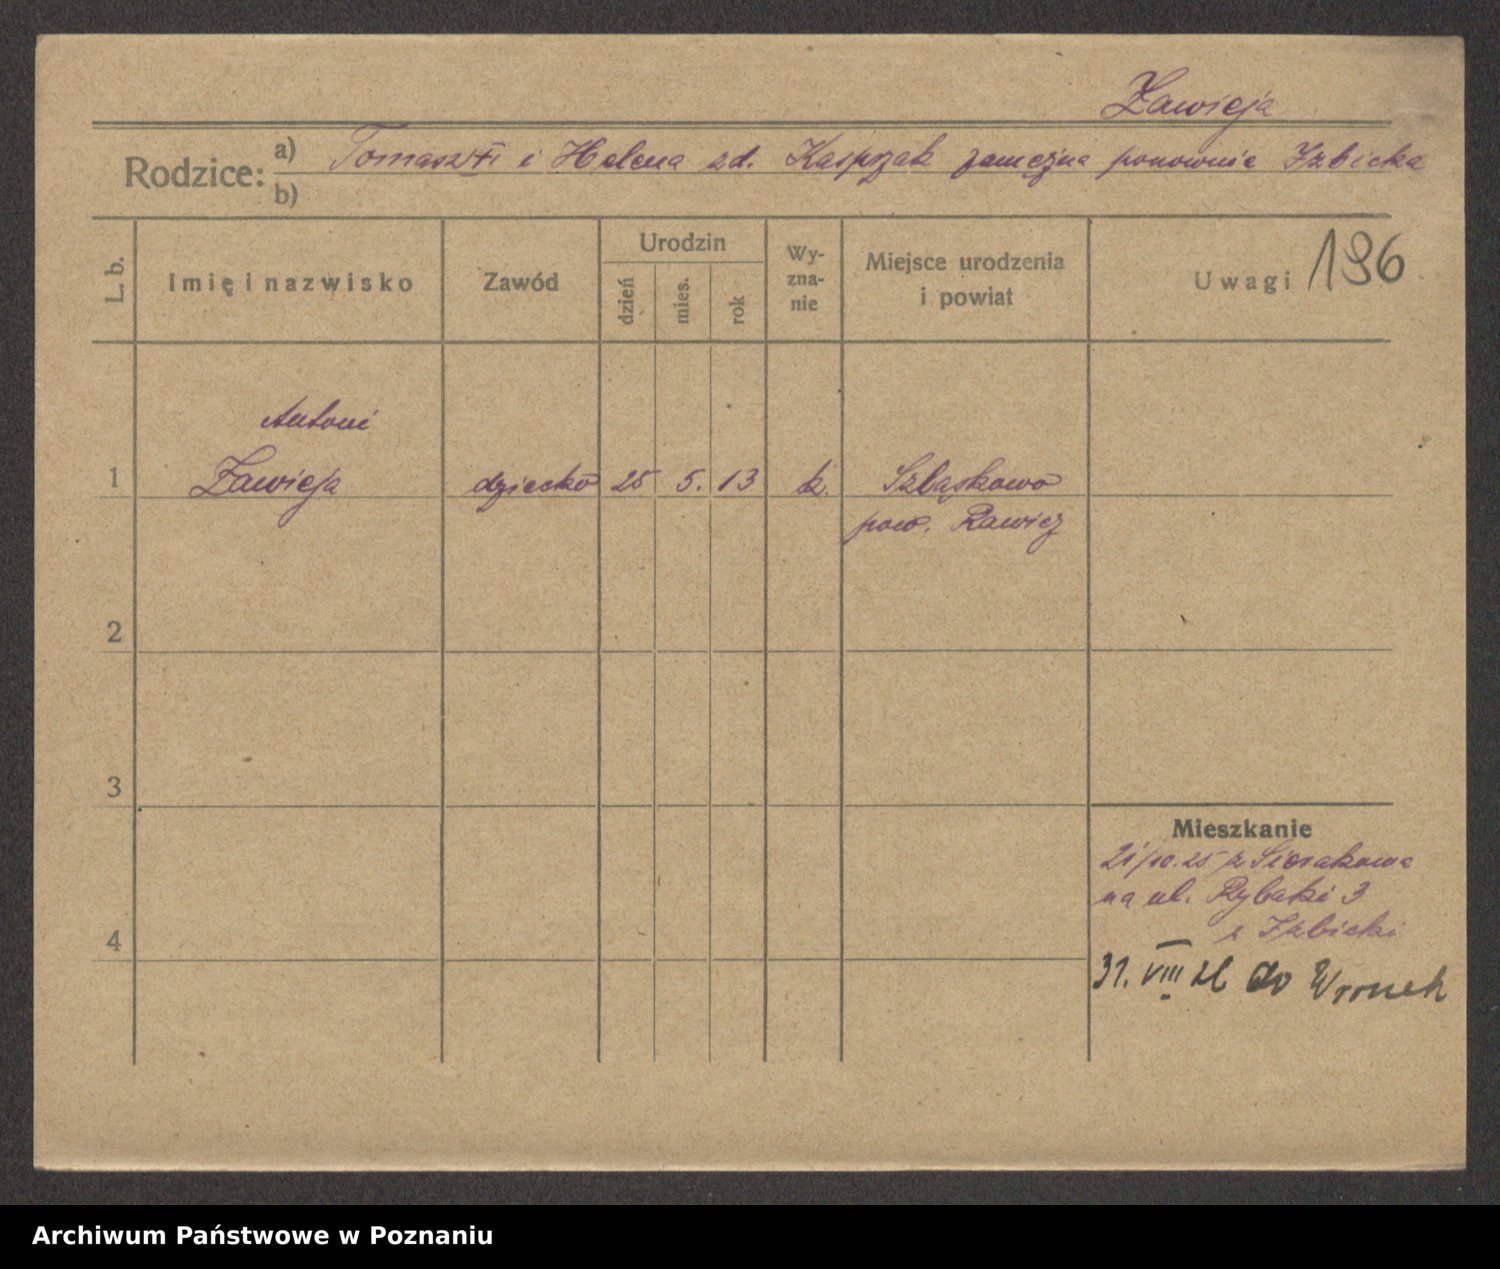 Zawieja
Rodzice: a) Tomasz † i Helena zd. Kasprzak zamężna ponownie Izbicka
b)
L. b.
Imię i nazwisko
Zawód
Urodzin
dzień
mies.
rok
Wy-
zna-
nie
Miejsce urodzenia
i powiat
Uwagi 196
Antoni
1 Zawieja dziecko 25 5. 13 k. Szląskowo
pow. Rawicz
2
3
4
Mieszkanie
21/10.25 z Sierakowa
na ul. Rybaki 3
z Izbicki
31. VIII 26 do Wronek
Archiwum Państwowe w Poznaniu